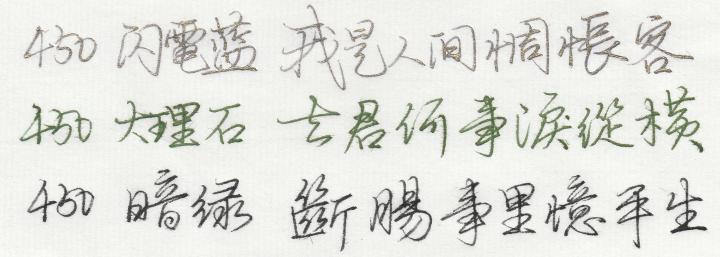 450 闪電蓝 我是人间惆悵客
450 大理石 知君何事淚縱橫
450 暗绿 斷腸事里憶平生